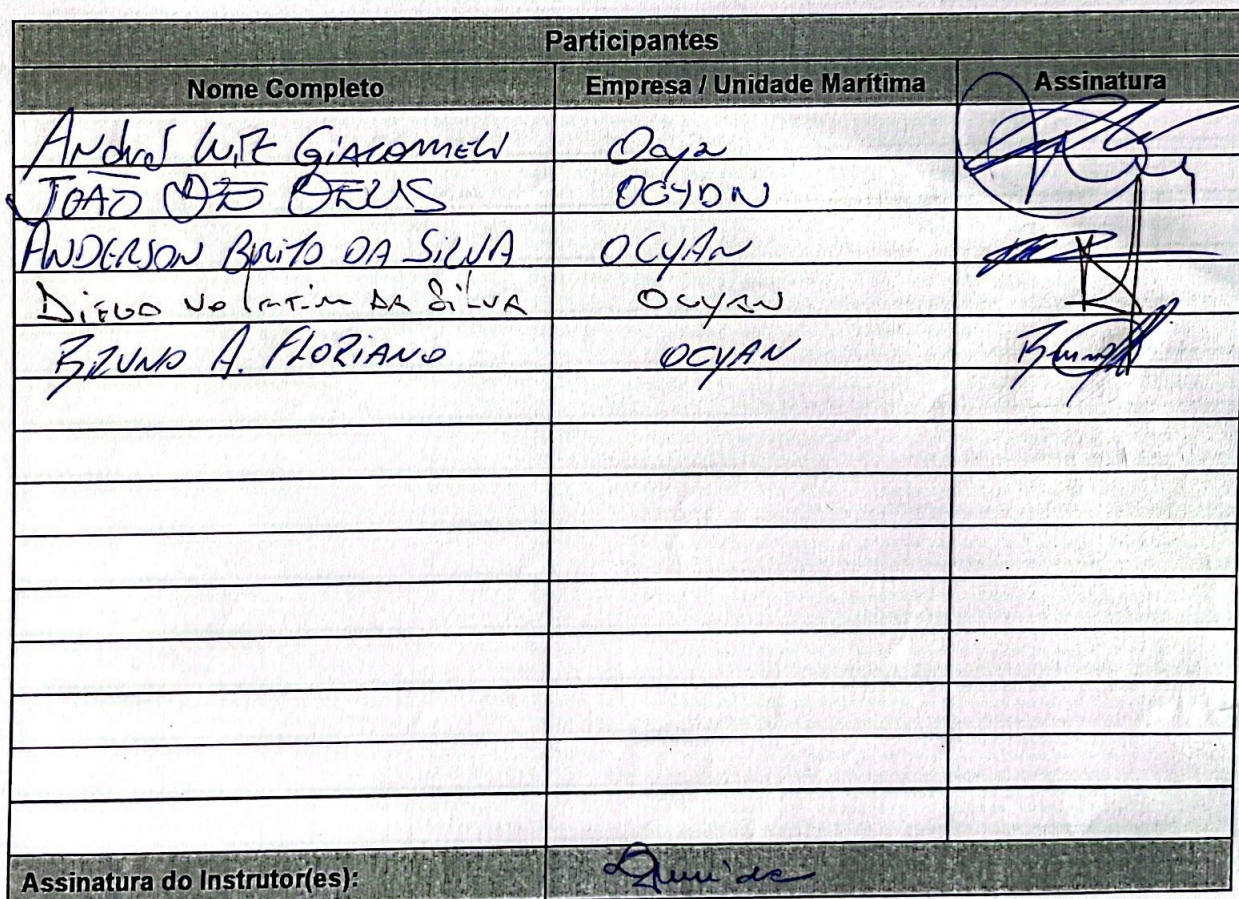 Participantes
Nome Completo Empresa / Unidade Marítima Assinatura
André Luiz GIACOMELLI Ocyan
JOÃO DE DEUS OCYAN
ANDERSON BRITO DA SILVA OCYAN
DIEGO VALENTIM DA SILVA OCYAN
BRUNO A. FLORIANO OCYAN Bruno
Assinatura do Instrutor(es):